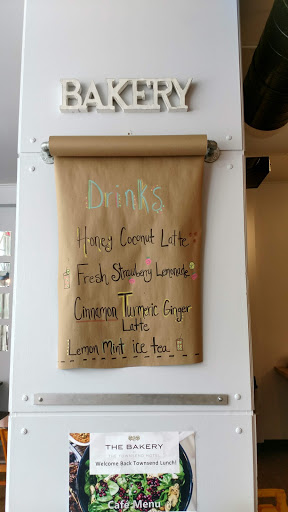 BAKERY
Drinks
Honey Coconut Latte
Fresh Strawberry Lemonade
Cinnamon Turmeric Ginger
Latte
Lemon Mint ice tea
THE BAKERY
THE TOWNSEND HOTEL
Welcome Back Townsend Lunch!
Café Menu